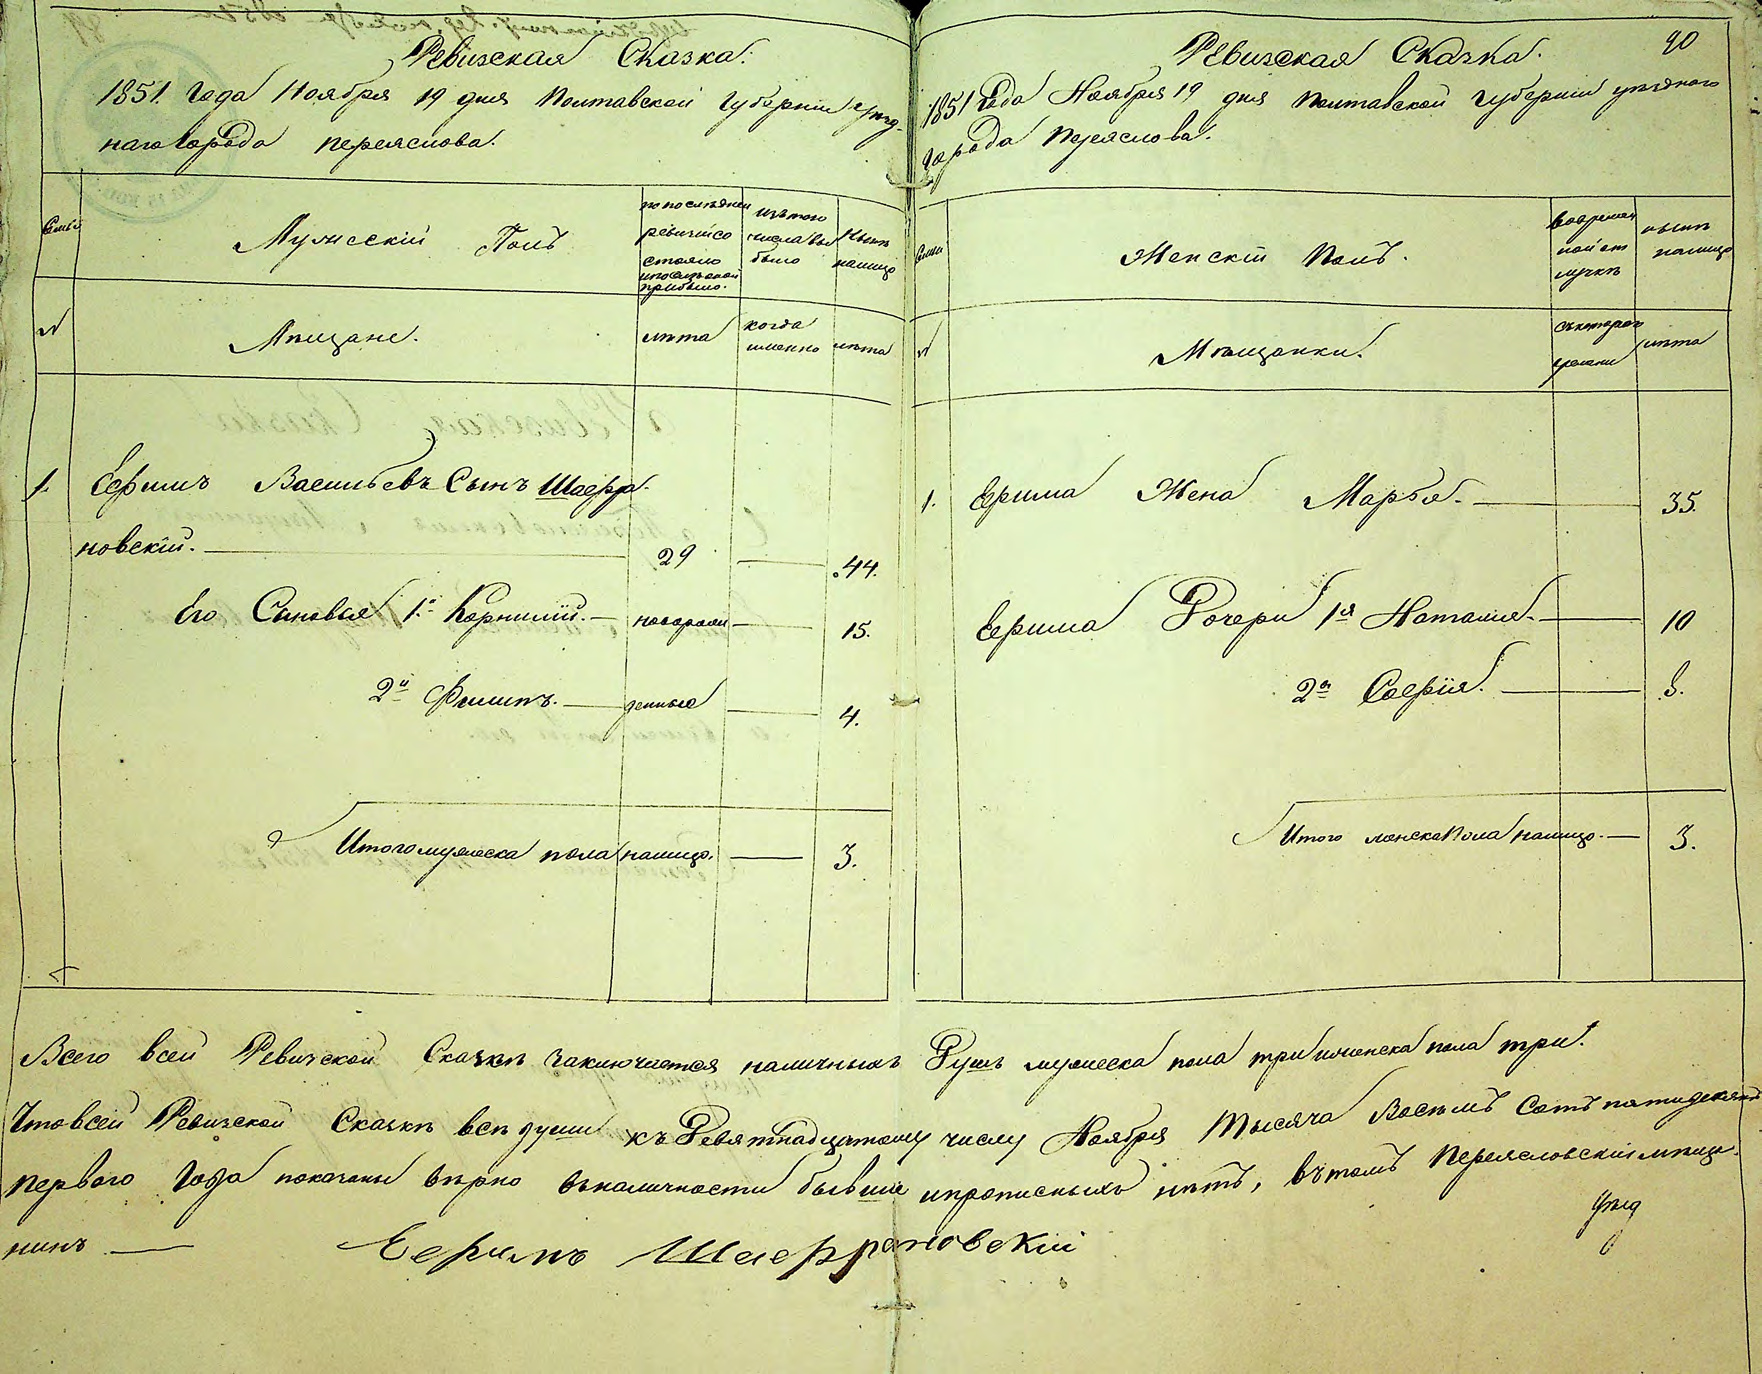 Ревизская Сказка.
1851 года Ноября 19 дня Полтавской Губернии уезд-
наго города переяслова.
Семьи
Мужескій Полъ
по последней
ревизіи со
стояло
и после оной
прибыло.
изъ того
числа вы
было
Ныне
налицо
№
Мещане.
лета
когда
именно
лета
1. Ефимъ Васильевъ Сынъ Шафра-
новскій. 29 44.
Его Сыновья 1й Корнилій. новорож 15.
2й Филипъ. денные 4.
Итого мужеска пола налицо. 3.
90
Ревизская Сказка.
1851 года Ноября 19 дня Полтавской губерніи уезднаго
города Переяслова.
Семьи
Женскій Полъ.
во времен
ной от
лучке
ныне
налицо
№
Мещанки.
съ котораго
времени
лета
1. Ефима Жена Марфа. 35.
Ефима Дочери 1я Наталія. 10
2я Софія. 8.
Итого женска Пола налицо. 3.
Всего в сей Ревизской Сказке заключается наличныхъ Душъ мужеска пола три и женска пола три.
Что в сей Ревизской Сказке все души къ Девятнадцатому числу Ноября Тысяча Восемъ Сотъ пятидесятъ
первого Года показаны верно въ наличности бывшие и прописныхъ нетъ, въ томъ Переясловскій меща-
нинъ
Ефимъ Шафрановскій